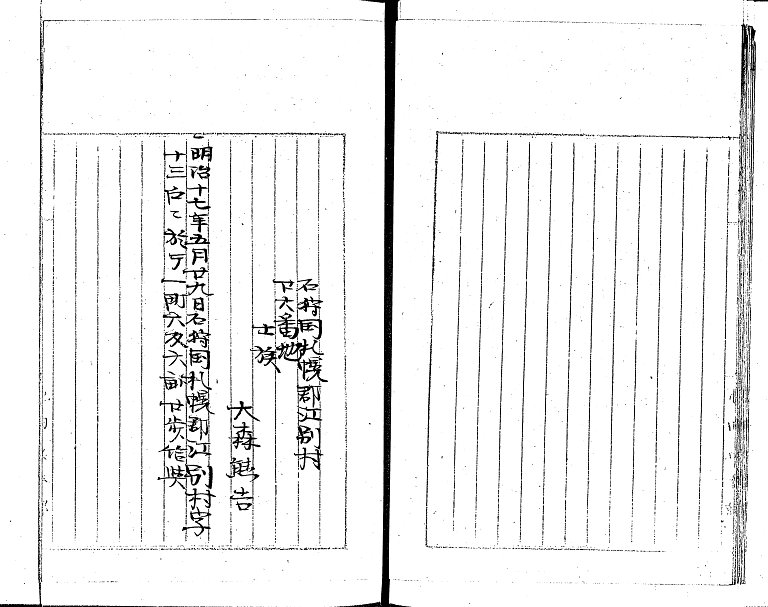 石狩国札幌郡江別村
廿六番地
士族
大森 吉
一明治十七年五月廿九日石狩国札幌郡江別村字
十三戸ニ於テ一町六反六畝廿歩